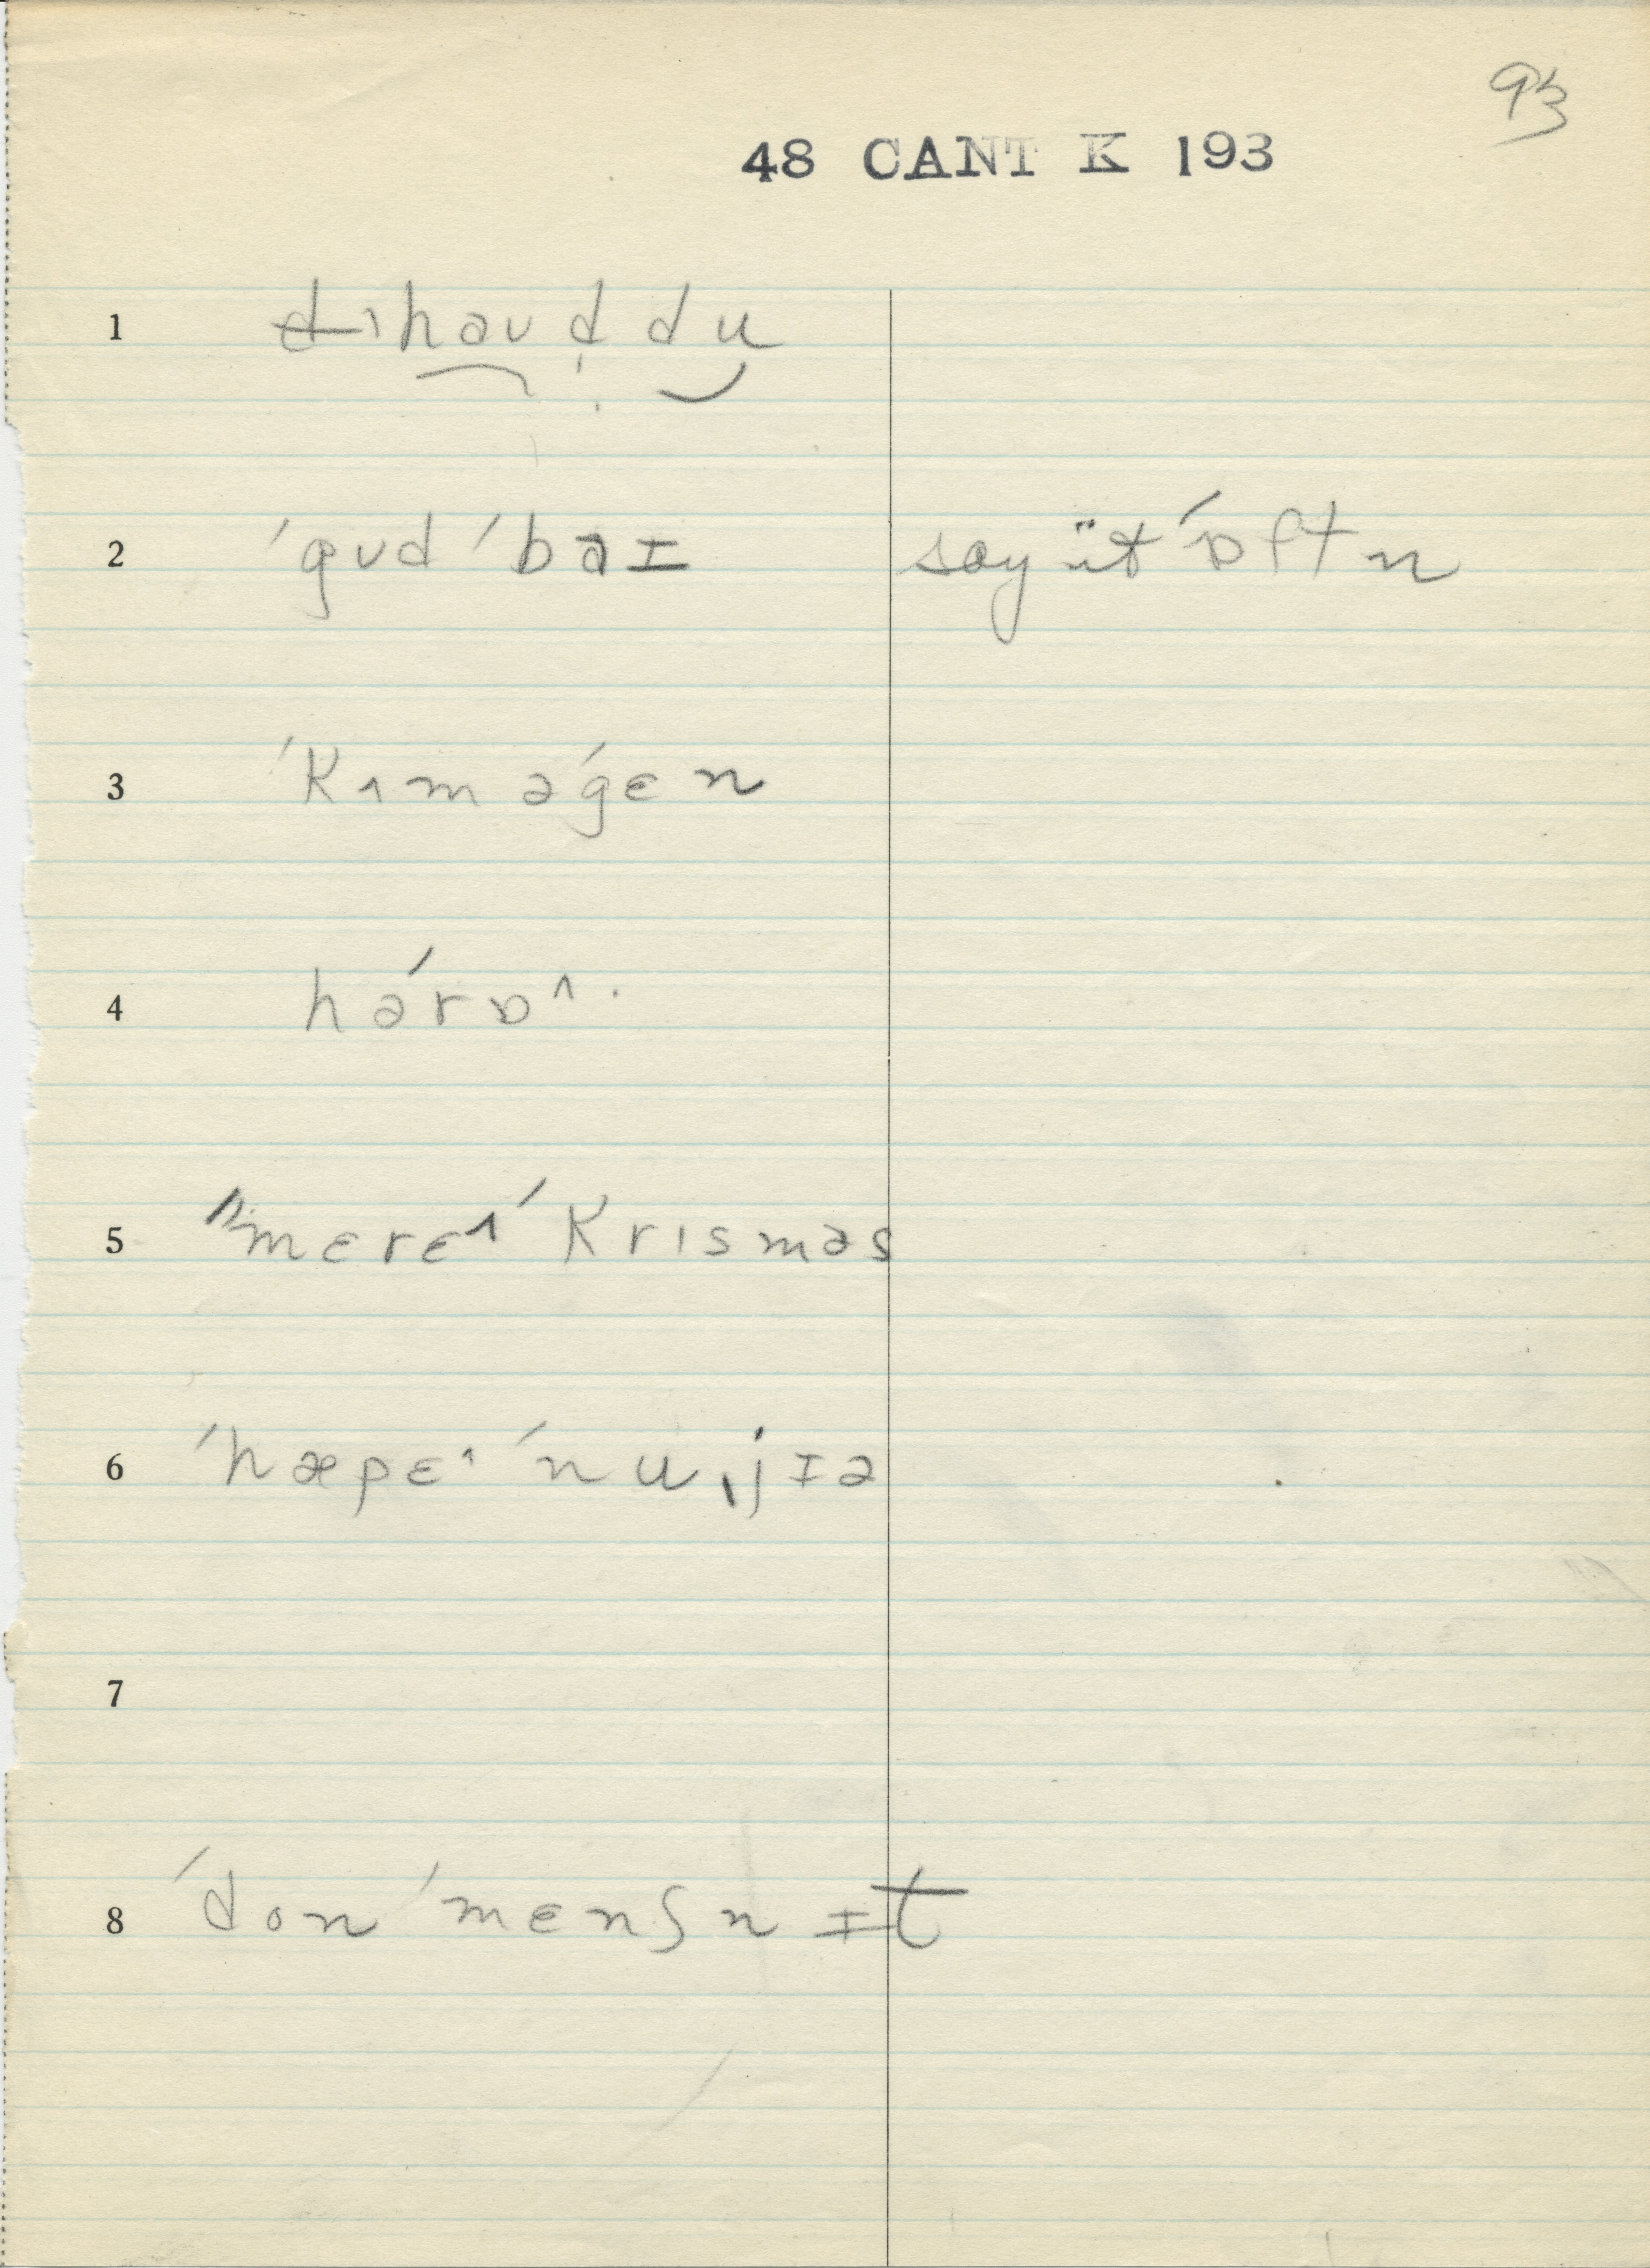 93
48 CANT K 193
1 haʊd̩ du
2 ˈgʊd ˈbaɪ say ït ˈɒftn
3 ˈkʌm əˈgɛn
4 hərɒ^.
5 "mɛrɛ^ ˈkrɪsməs
6 ˈhæpɛ^ ˈnuˌjɪə
7
8 ˈdon ˈmɛnʃn ɪt